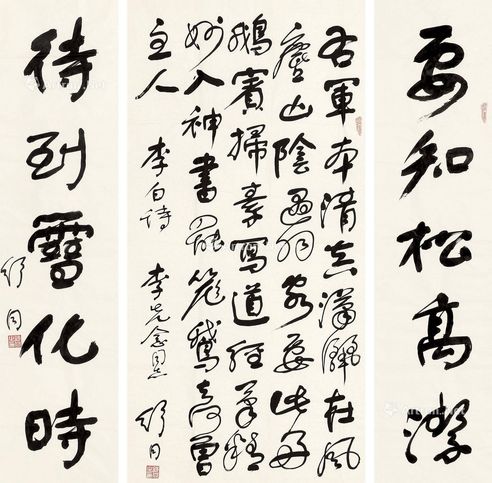 要知松高潔
右軍本清真瀟灑在風
塵山陰遇羽客要此好
鵝賓掃素寫道經筆精
妙入神書罷籠鵝去何曾
主人 李白詩 李先念同志 舒同
待到雪化時
舒同